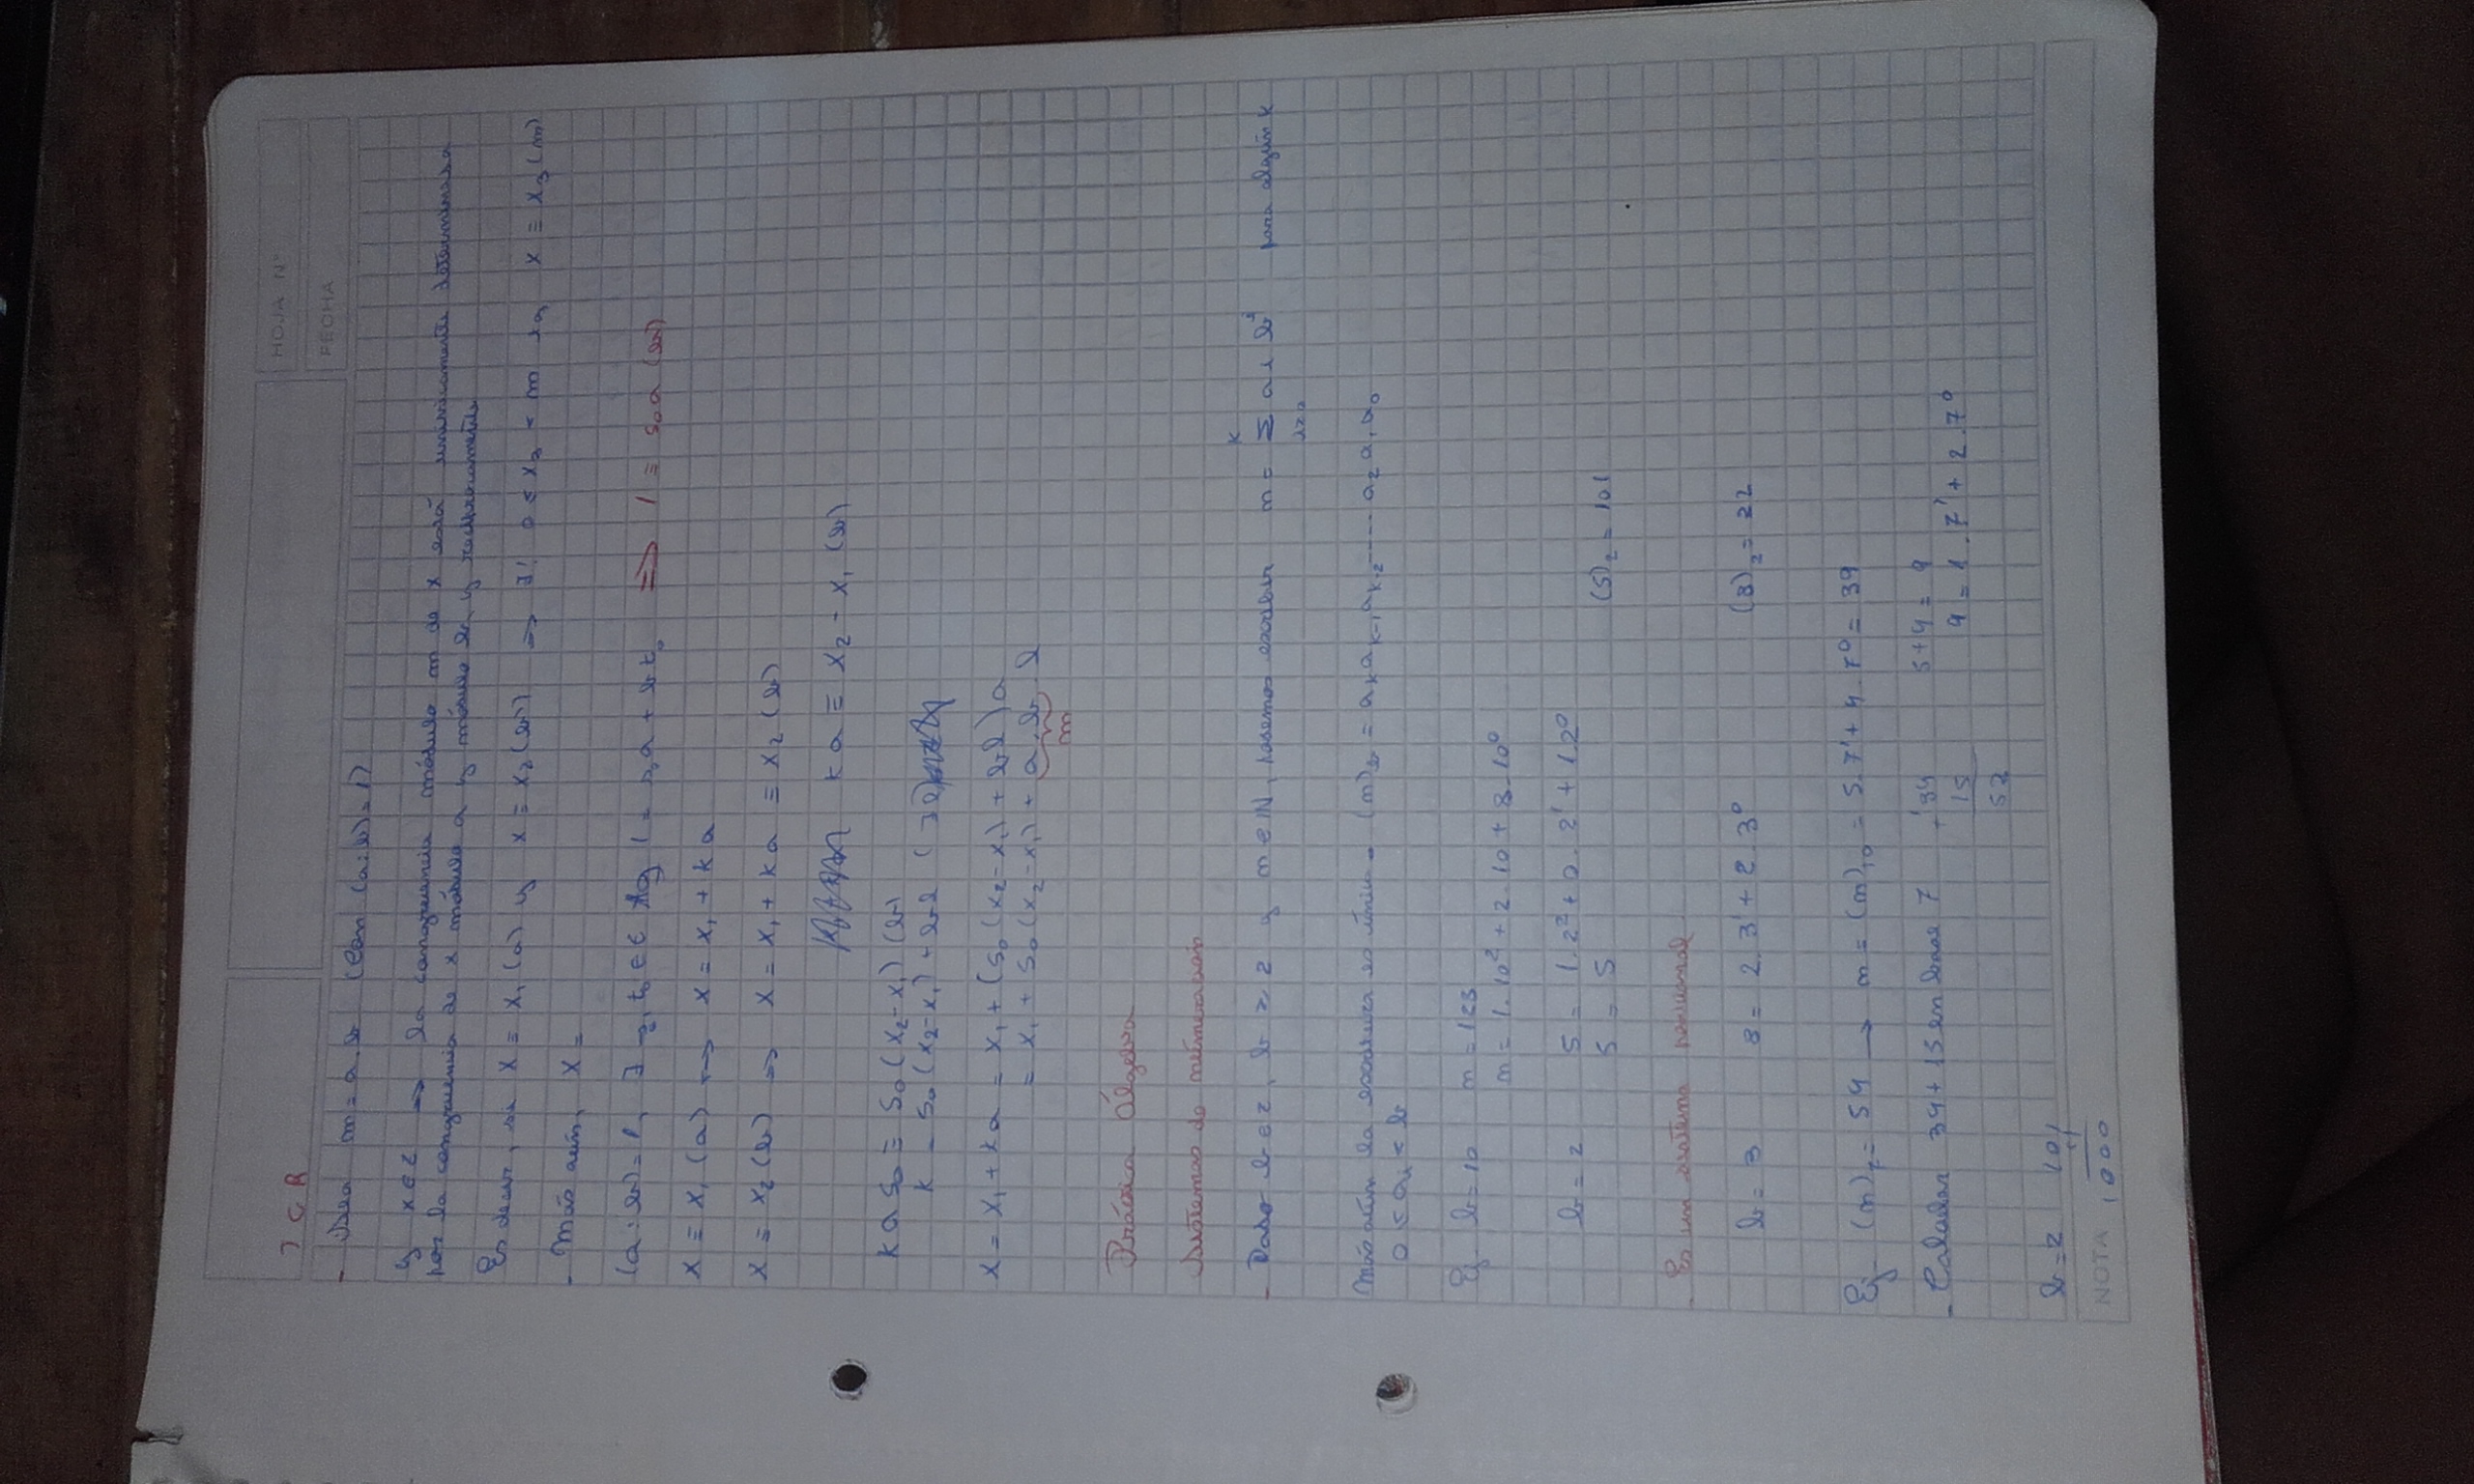 TCR
HOJA N°
FECHA
- Sea m = a.b (con (a:b)=1)
y x∈Z ⇒ la congruencia módulo m de x está unívocamente determinada
por la congruencia de x módulo a y módulo b, y recíprocamente
Es decir, si x ≡ x₁ (a) y x ≡ x₂ (b) ⇒ ∃! 0 ≤ x₃ < m tq x ≡ x₃ (m)
- Más aún, x =
(a:b)=1, ∃ s₀, t₀ ∈ Z tq 1 = s₀a + bt₀ ⇒ 1 ≡ s₀a (b)
x ≡ x₁ (a) ↔ x = x₁ + ka
x ≡ x₂ (b) ⇒ x = x₁ + ka ≡ x₂ (b)
ka ≡ x₂ - x₁ (b)
kas₀ ≡ s₀(x₂-x₁) (b)
k = s₀(x₂-x₁) + bl (∃l)
x = x₁ + ka = x₁ + (s₀(x₂-x₁) + bl)a
= x₁ + s₀(x₂-x₁) + a.b.l
m
Práctica Álgebra
Sistemas de numeración
- Dado b∈Z, b ≥ 2 y m∈N, podemos escribir m = Σ aᵢ bⁱ para algún k
k
i=0
Más aún la escritura es única. (m)_b = aₖaₖ₋₁aₖ₋₂---- a₂a₁a₀
0 ≤ aᵢ < b
Ej. b=10 m = 123
m = 1.10² + 2.10 + 3.10⁰
b = 2 5 = 1.2² + 0.2¹ + 1.2⁰
5 = 5 (5)₂ = 101
- Es un sistema posicional
b = 3 8 = 2.3¹ + 2.3⁰ (8)₂ = 22
Ej (m)₇ = 54 → m = (m)₁₀ = 5.7¹ + 4.7⁰ = 39
- Calcular 34 + 15 en base 7 + 34 5+4 = 9
15 9 = 1.7¹ + 2.7⁰
52
b=2 101
11
NOTA 1000